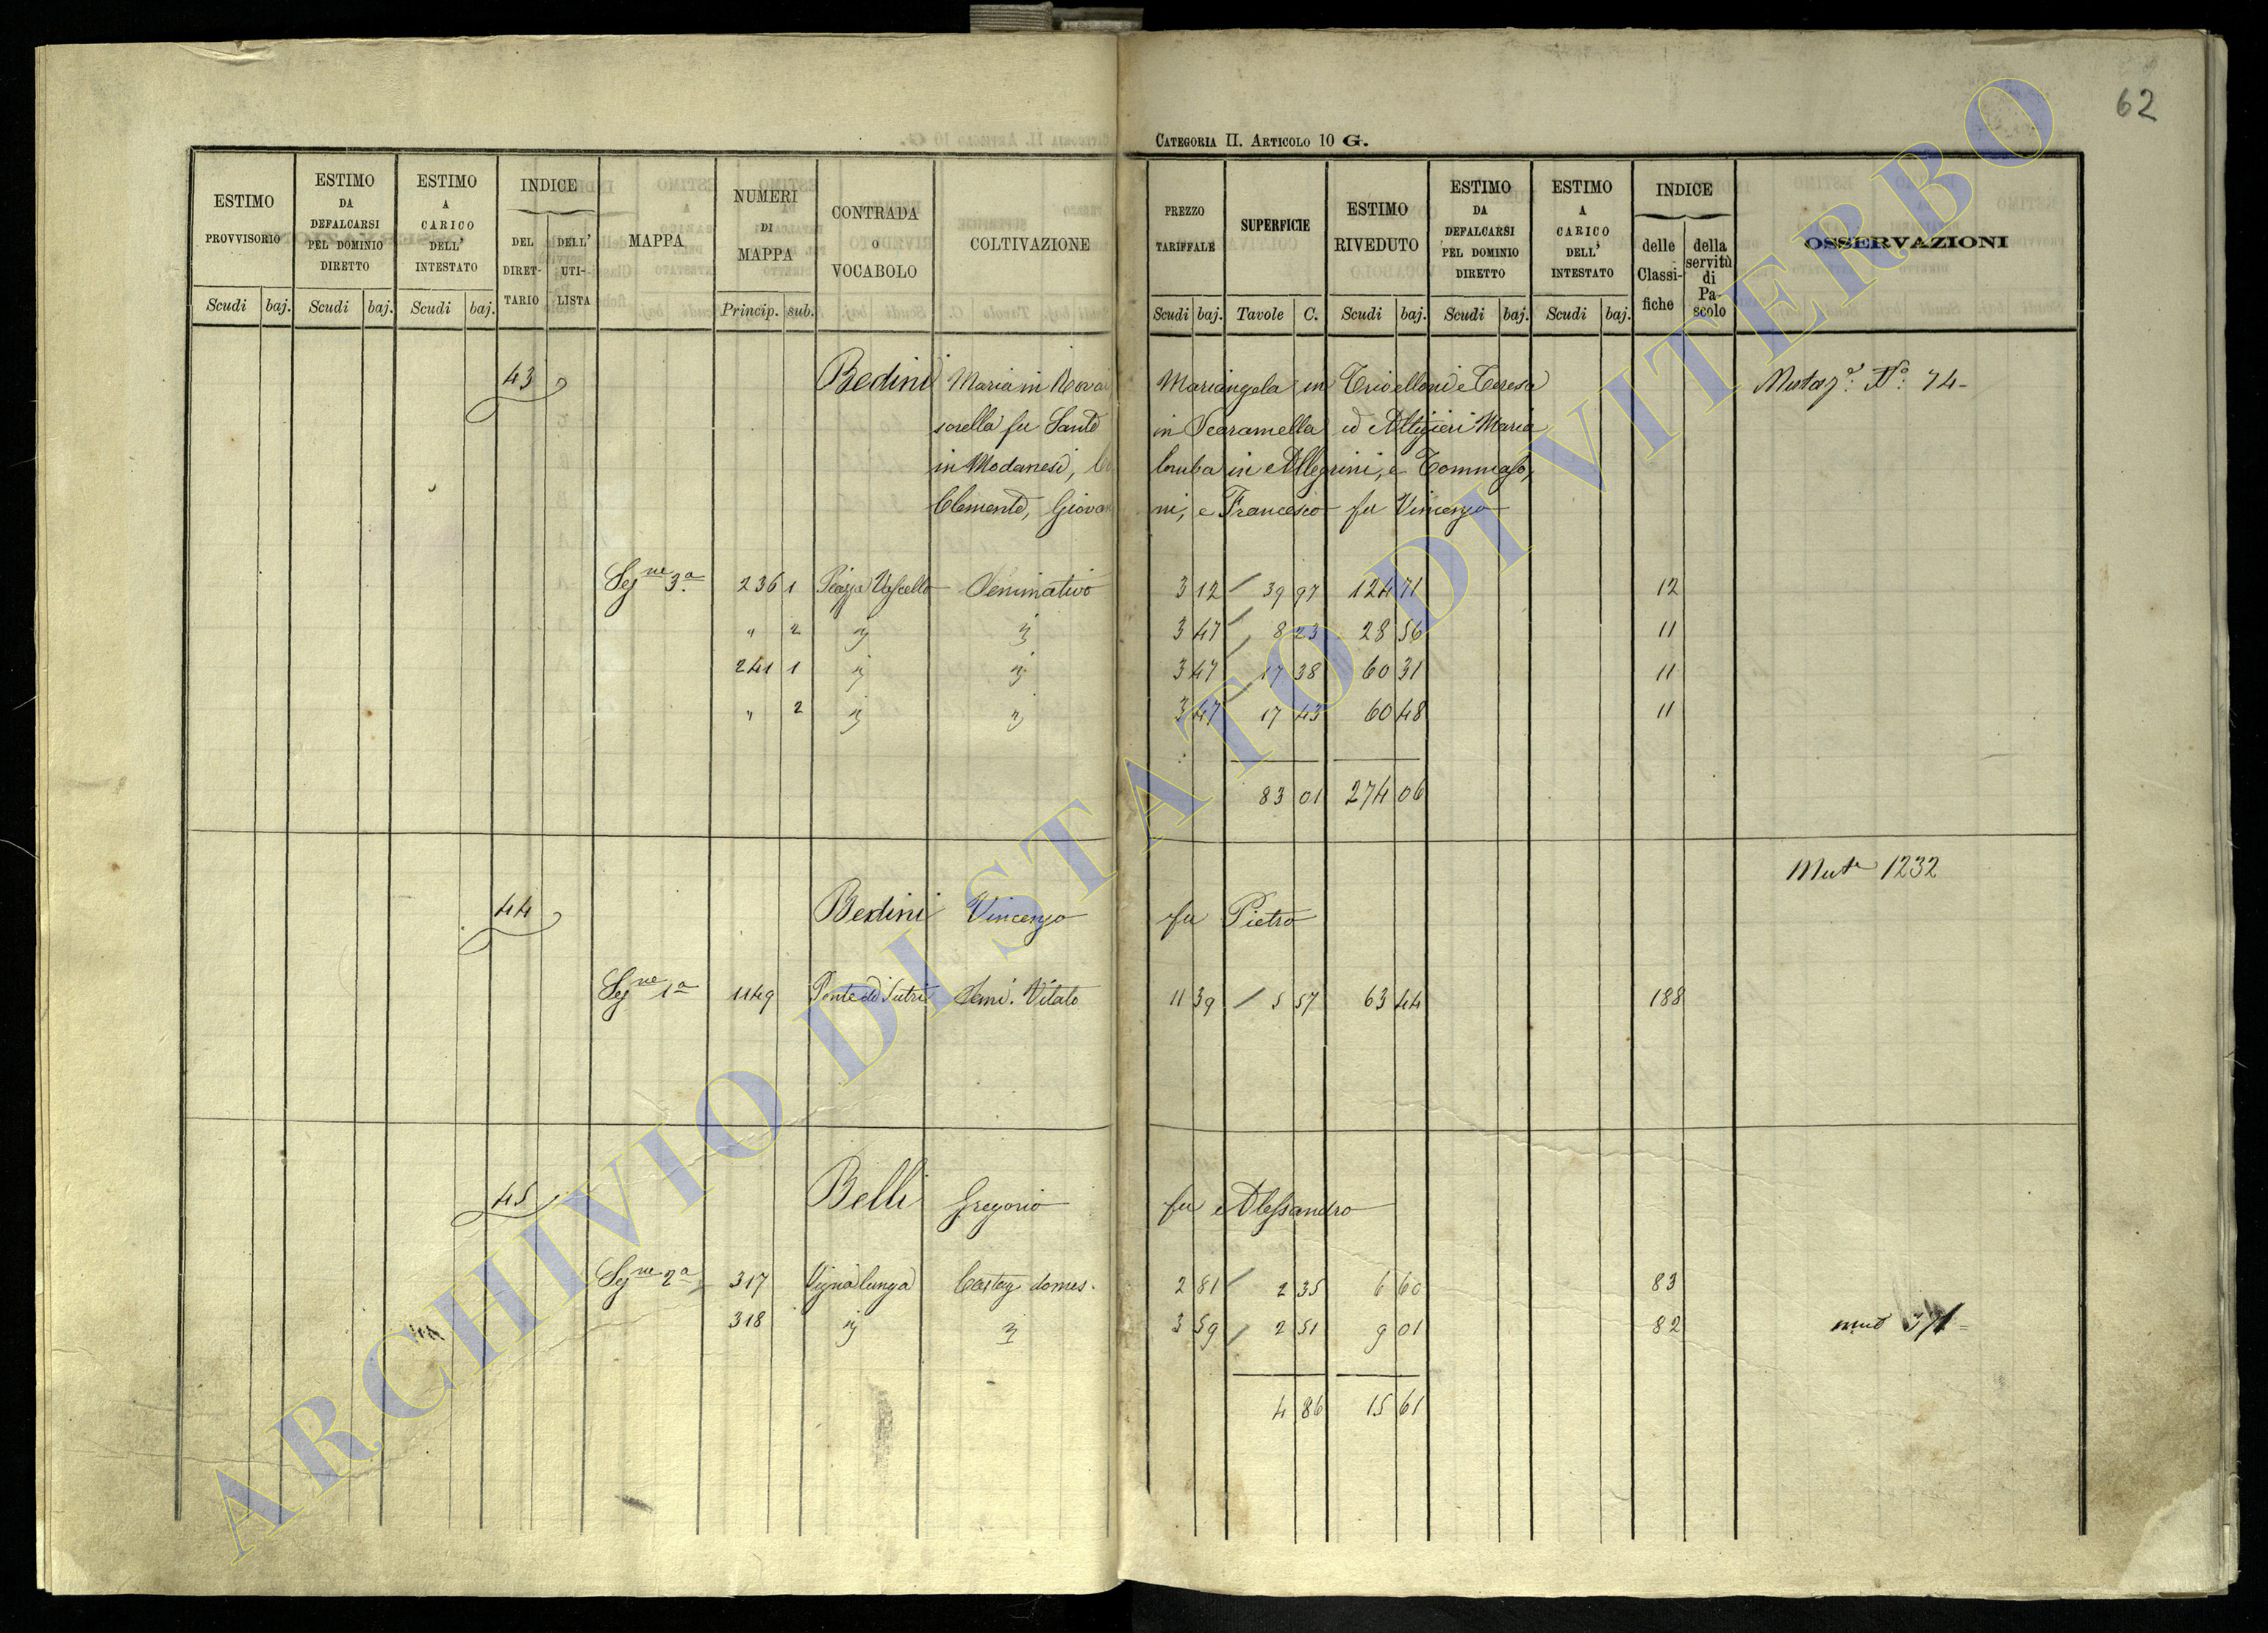 62
CATEGORIA II. ARTICOLO 10 G.
ESTIMO PROVVISORIO
ESTIMO DA DEFALCARSI PEL DOMINIO DIRETTO
ESTIMO A CARICO DELL' INTESTATO
INDICE
DEL DIRET-TARIO
DELL' UTI-LISTA
MAPPA
NUMERI DI MAPPA
CONTRADA O VOCABOLO
COLTIVAZIONE
PREZZO TARIFFALE
SUPERFICIE
ESTIMO RIVEDUTO
ESTIMO DA DEFALCARSI PEL DOMINIO DIRETTO
ESTIMO A CARICO DELL' INTESTATO
INDICE
delle Classi-fiche
della servitù di Pa-scolo
OSSERVAZIONI
Scudi baj. Scudi baj. Scudi baj. Princip. sub. Scudi baj. Tavole C. Scudi baj. Scudi baj. Scudi baj.
43 Bedini Maria in Mariangela in Trivelloni e Teresa
sorella fu Sante in Scaramella ed Altigieri Maria
in Modanesi, Co lomba in Allegrini, e Tommaso,
Clemente, Giovan ni, e Francesco fu Vincenzo
N.º 74
Sez.ne 3.a 236 1 Piazza Vascello Seminativo 3 12 39 97 124 71 12
" 2 " " 3 47 8 23 28 56 11
241 1 " " 3 47 17 38 60 31 11
" 2 " " 3 47 17 43 60 48 11
83 01 274 06
Muta 1232
44 Bedini Vincenzo fu Pietro
Sez.ne 1a 1149 Ponte di Sutri Semi. Vitato 11 39 5 57 63 44 188
45 Belli Gregorio fu Alessandro
Sez.ne 2a 317 Vigna lunga Castag. domes. 2 81 2 35 6 60 83
318 " " 3 59 2 51 9 01 82
4 86 15 61
ARCHIVIO DI STATO DI VITERBO